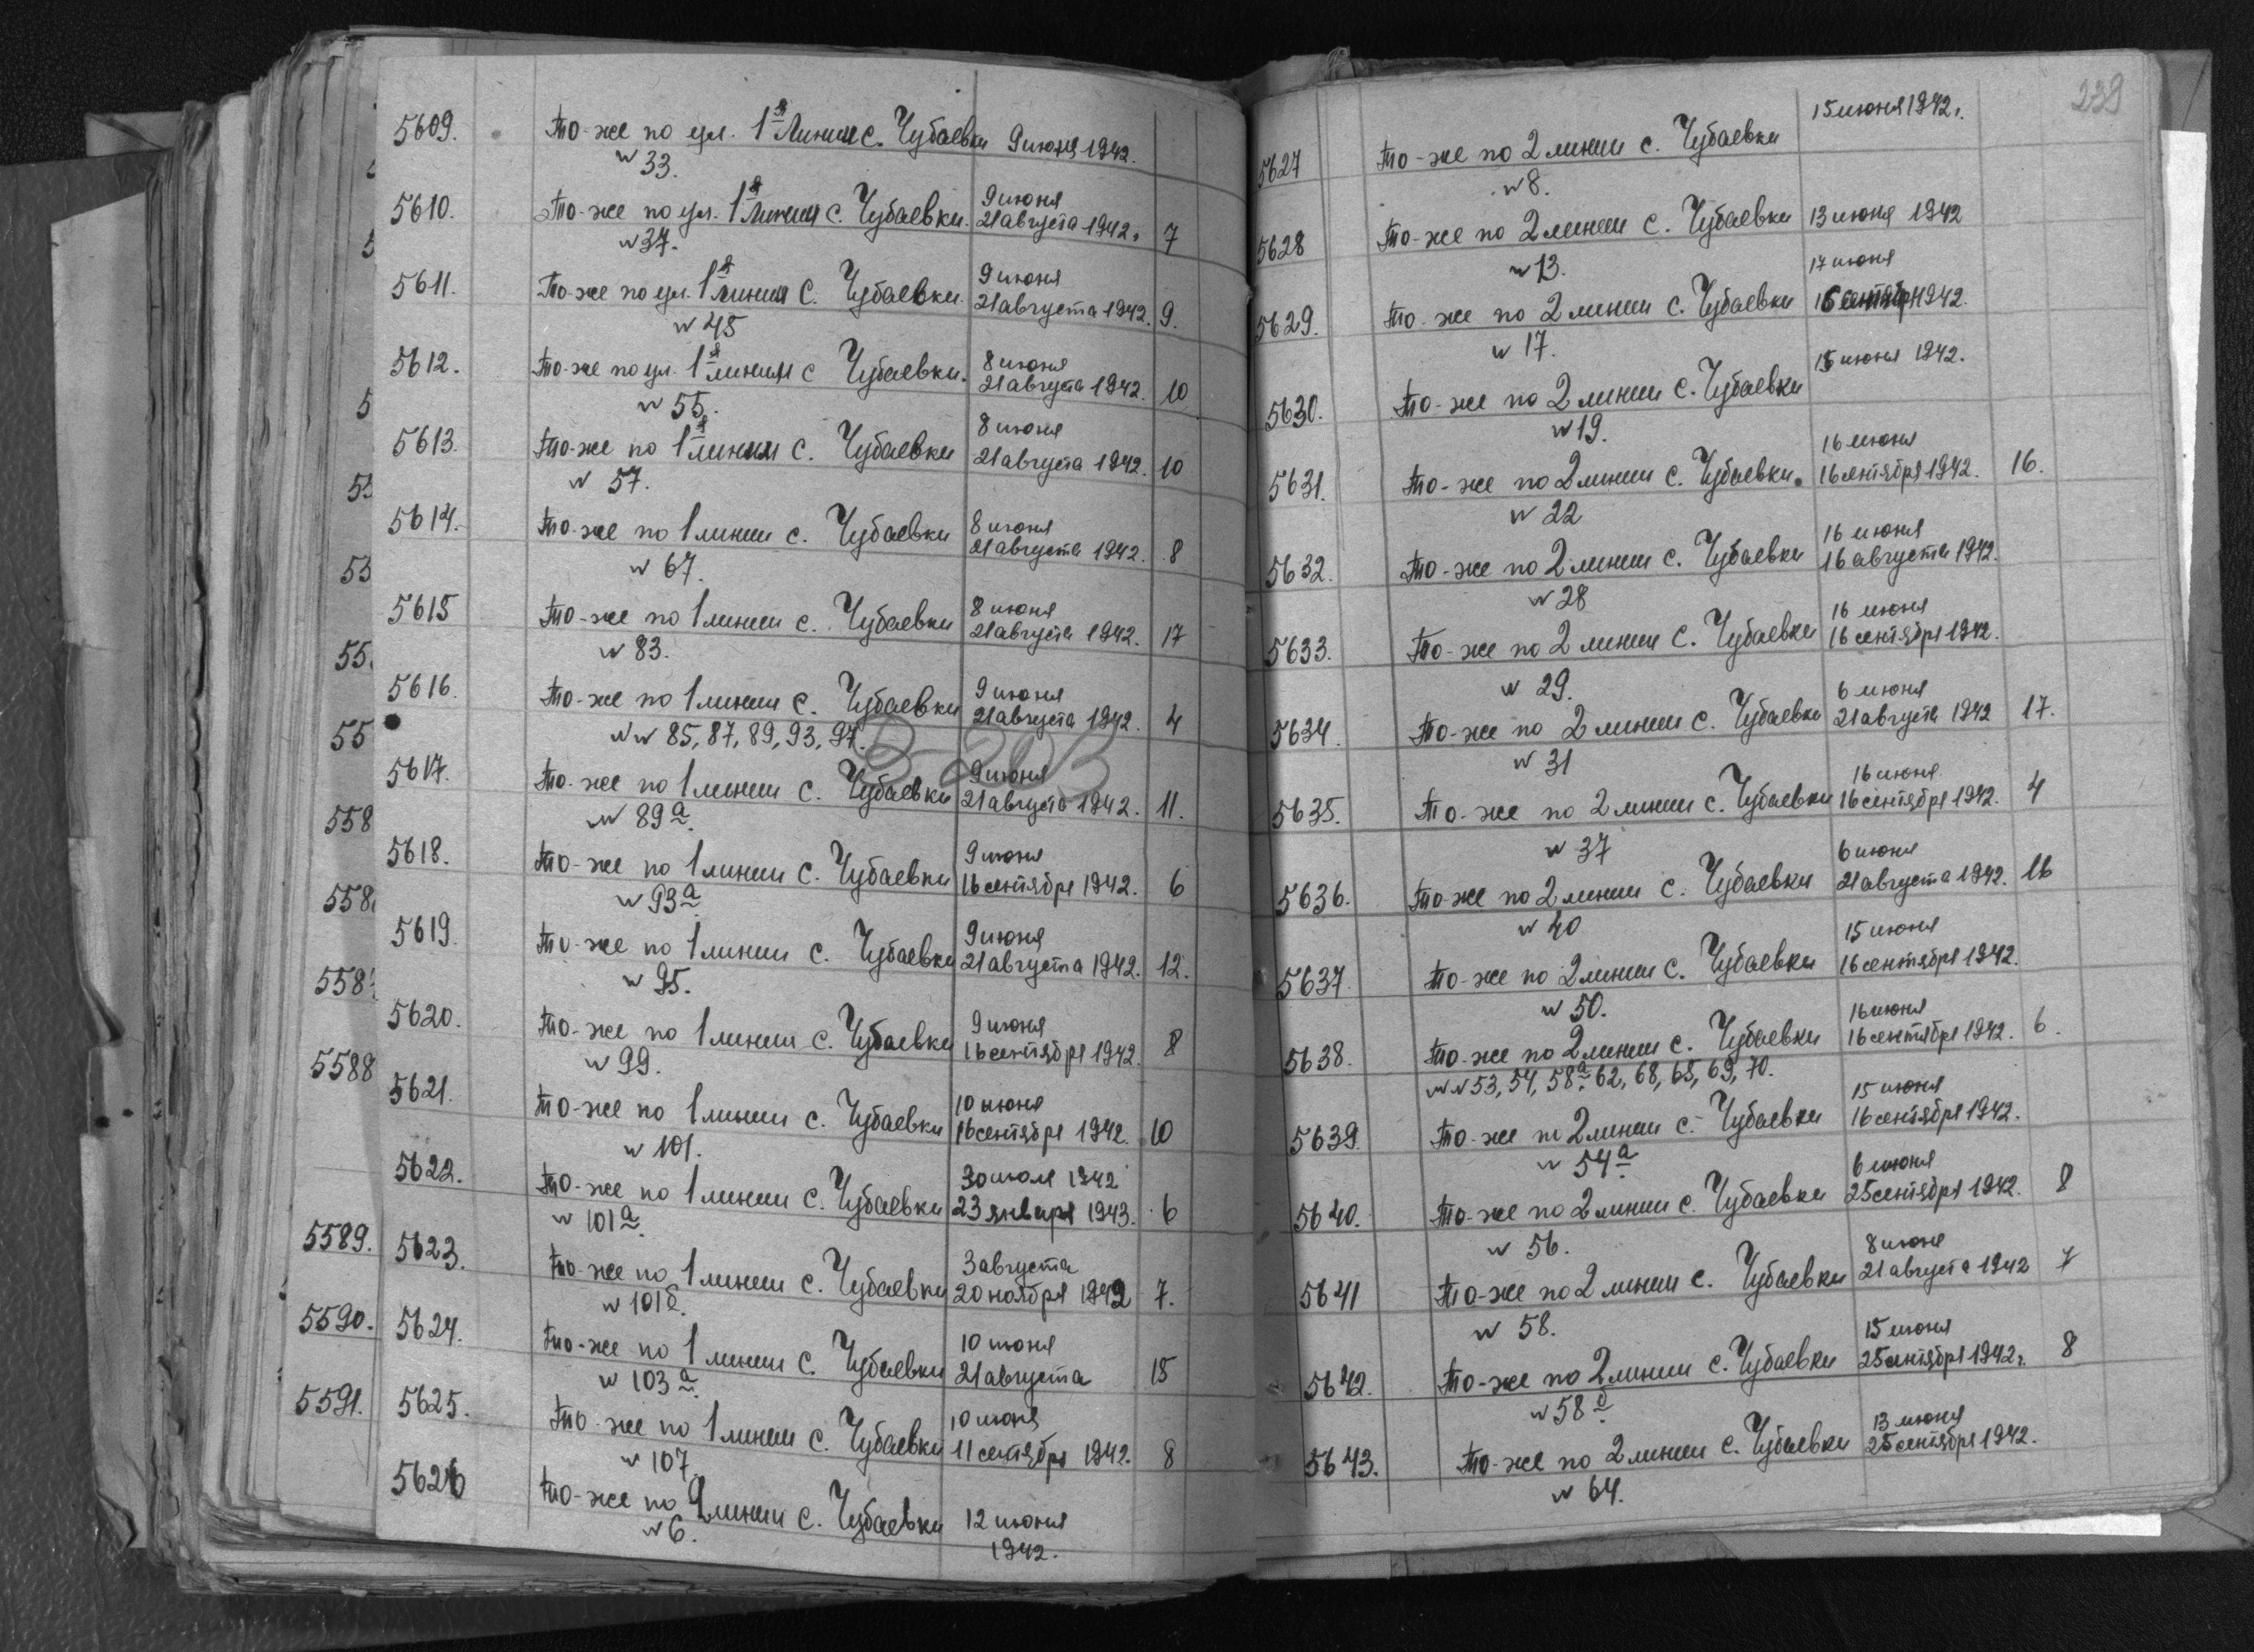 5609. То-же по ул. 1я Линия с. Чубаевки 9 июня 1942.
№ 33.
9 июня
5610. То-же по ул. 1я Линия с. Чубаевки. 21 августа 1942. 7
№ 37.
9 июня
5611. То-же по ул. 1я линия с. Чубаевки. 21 августа 1942. 9.
№ 45
8 июня
5612. То-же по ул. 1я линия с Чубаевки. 21 августа 1942. 10
№ 55.
8 июня
5613. То-же по 1я линия с. Чубаевки 21 августа 1942. 10
№ 57.
8 июня
5614. То-же по 1 линии с. Чубаевки 21 августа 1942. 8
№ 67.
8 июня
5615 То-же по 1 линии с. Чубаевки 21 августа 1942. 17
№ 83.
9 июня
5616. То-же по 1 линии с. Чубаевки 21 августа 1942. 4
№№ 85, 87, 89, 93, 97.
9 июня
5617. То-же по 1 линии с. Чубаевки 21 августа 1942. 11.
№ 89а.
9 июня
5618. То-же по 1 линии с. Чубаевки 16 сентября 1942. 6
№ 93а.
9 июня
5619. То-же по 1 линии с. Чубаевки 21 августа 1942. 12.
№ 95.
9 июня
5620. То-же по 1 линии с. Чубаевки 16 сентября 1942. 8
№ 99.
10 июня
5621. То-же по 1 линии с. Чубаевки 16 сентября 1942. 10
№ 101.
30 июля 1942
5622. То-же по 1 линии с. Чубаевки 23 января 1943. 6
№ 101а.
3 августа
5623. То-же по 1 линии с. Чубаевки 20 ноября 1942 7.
№ 101б.
10 июня
5624. То-же по 1 линии с. Чубаевки 21 августа 15
№ 103а.
10 июня
5625. То-же по 1 линии с. Чубаевки 11 сентября 1942. 8
№ 107.
5626 То-же по 2 линии с. Чубаевки 12 июня
№ 6. 1942.
558
5588
5589.
5590.
5591.
239
15 июня 1942.
5627 То-же по 2 линии с. Чубаевки
№ 8.
5628 То-же по 2 линии с. Чубаевки 13 июня 1942
№ 13.
17 июня
5629. То-же по 2 линии с. Чубаевки 16 сентября 1942.
№ 17.
15 июня 1942.
5630. То-же по 2 линии с. Чубаевки
№ 19.
16 июня
5631. То-же по 2 линии с. Чубаевки. 16 сентября 1942. 16.
№ 22
16 июня
5632. То-же по 2 линии с. Чубаевки 16 августа 1942.
№ 28
16 июня
5633. То-же по 2 линии с. Чубаевки 16 сентября 1942.
№ 29.
6 июня
5634. То-же по 2 линии с. Чубаевки 21 августа 1942 17.
№ 31
16 июня
5635. То-же по 2 линии с. Чубаевки 16 сентября 1942. 4
№ 37
6 июня
5636. То-же по 2 линии с. Чубаевки 21 августа 1942. 16
№ 40
15 июня
5637. То-же по 2 линии с. Чубаевки 16 сентября 1942.
№ 50.
16 июня
5638. То-же по 2 линии с. Чубаевки 16 сентября 1942. 6.
№№ 53, 54, 58а. 62, 68, 65, 69, 70.
15 июня
5639. То-же по 2 линии с. Чубаевки 16 сентября 1942.
№ 54а
6 июня
5640. То-же по 2 линии с. Чубаевки 25 сентября 1942. 8
№ 56.
8 июня
5641 То-же по 2 линии с. Чубаевки 21 августа 1942 7
№ 58.
15 июня
5642. То-же по 2 линии с. Чубаевки 25 сентября 1942. 8
№ 58б.
13 июня
5643. То-же по 2 линии с. Чубаевки 25 сентября 1942.
№ 64.